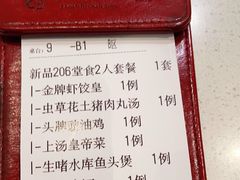 桌台:9 -B1 区
新品206堂食2人套餐 1套
|-金牌虾饺皇 1例
|-虫草花土猪肉丸汤 1例
|-头牌豉油鸡 1例
|-上汤皇帝菜 1例
|-生啫水库鱼头煲 1例